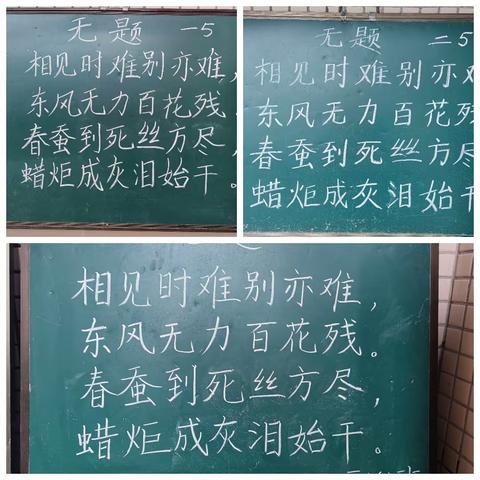 无题 一5
相见时难别亦难，
东风无力百花残
春蚕到死丝方尽，
蜡炬成灰泪始干。
无题 二5
相见时难别亦难
东风无力百花残
春蚕到死丝方尽
蜡炬成灰泪始干
相见时难别亦难，
东风无力百花残。
春蚕到死丝方尽，
蜡炬成灰泪始干。